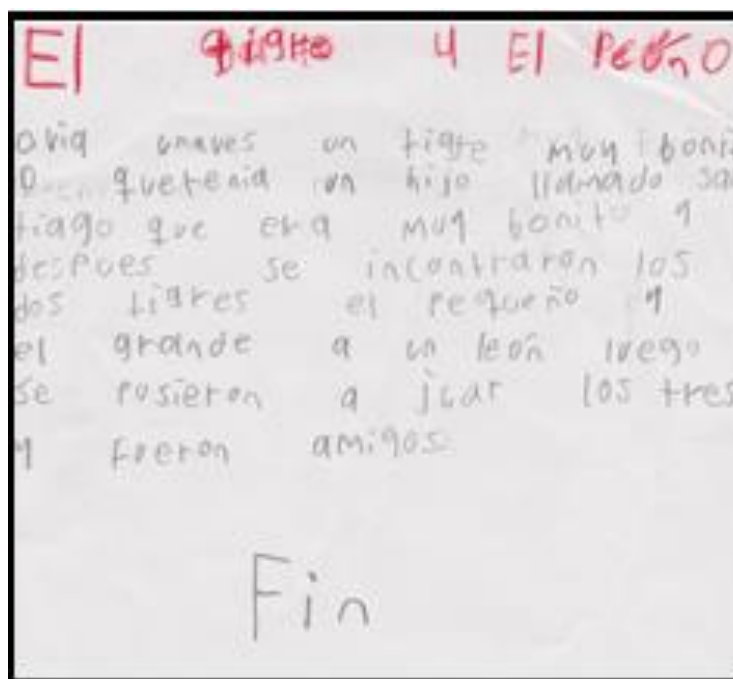 El tigre y El Peóno
avia unaves un tigre muy bonit
o quetenia un hijo llamado san
tiago que era muy bonito y
despues se incontraron los
dos tigres el pequeño y
el grande a un león luego
se pusieron a juar los tres
y fueron amigos
Fin